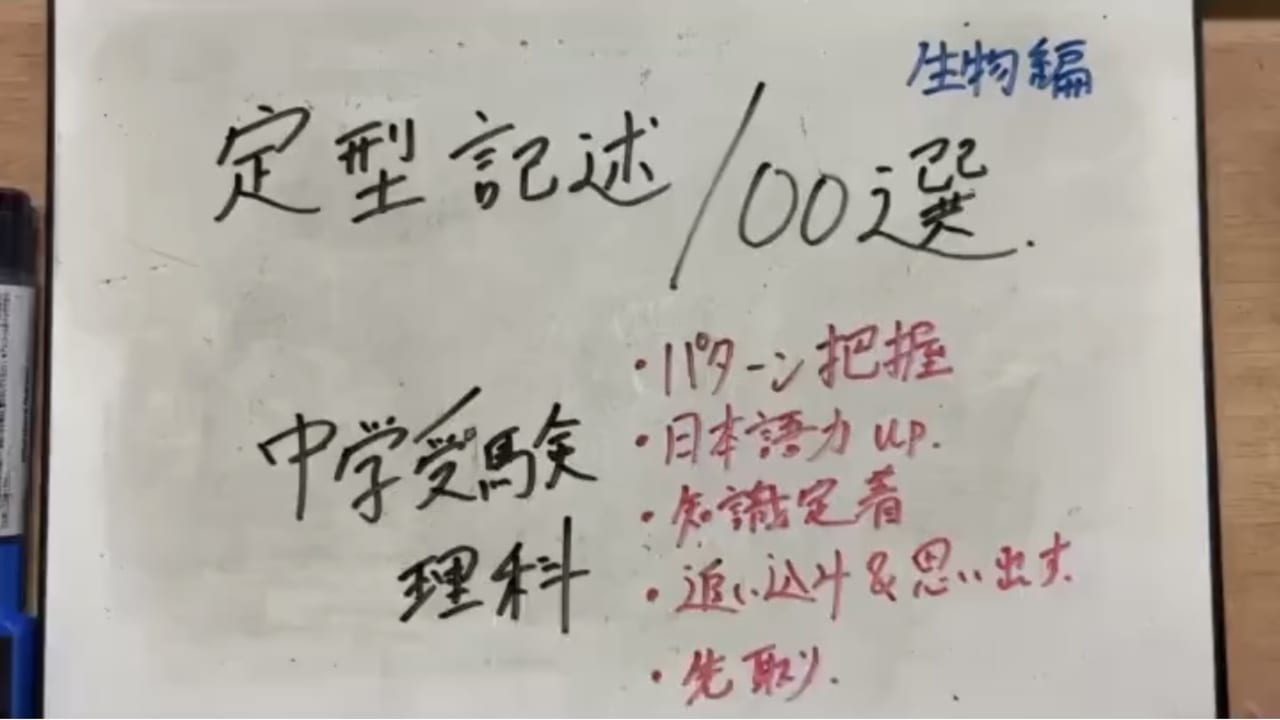 生物編
定型記述100選.
中学受験
理科
・パターン把握
・日本語力up.
・知識定着
・追い込み&思い出す.
・先取り.